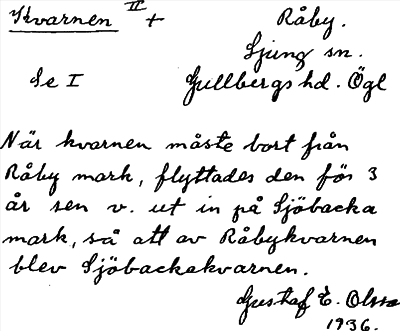 Kvarnen II +
Råby.
Ljung sn.
Se I
Gullbergs hd. Ögl
När kvarnen måste bort från
Råby mark, flyttades den för 3
år sen v. ut in på Sjöbacka
mark, så att av Råbykvarnen
blev Sjöbackakvarnen.
Gustaf E. Olsson
1936.